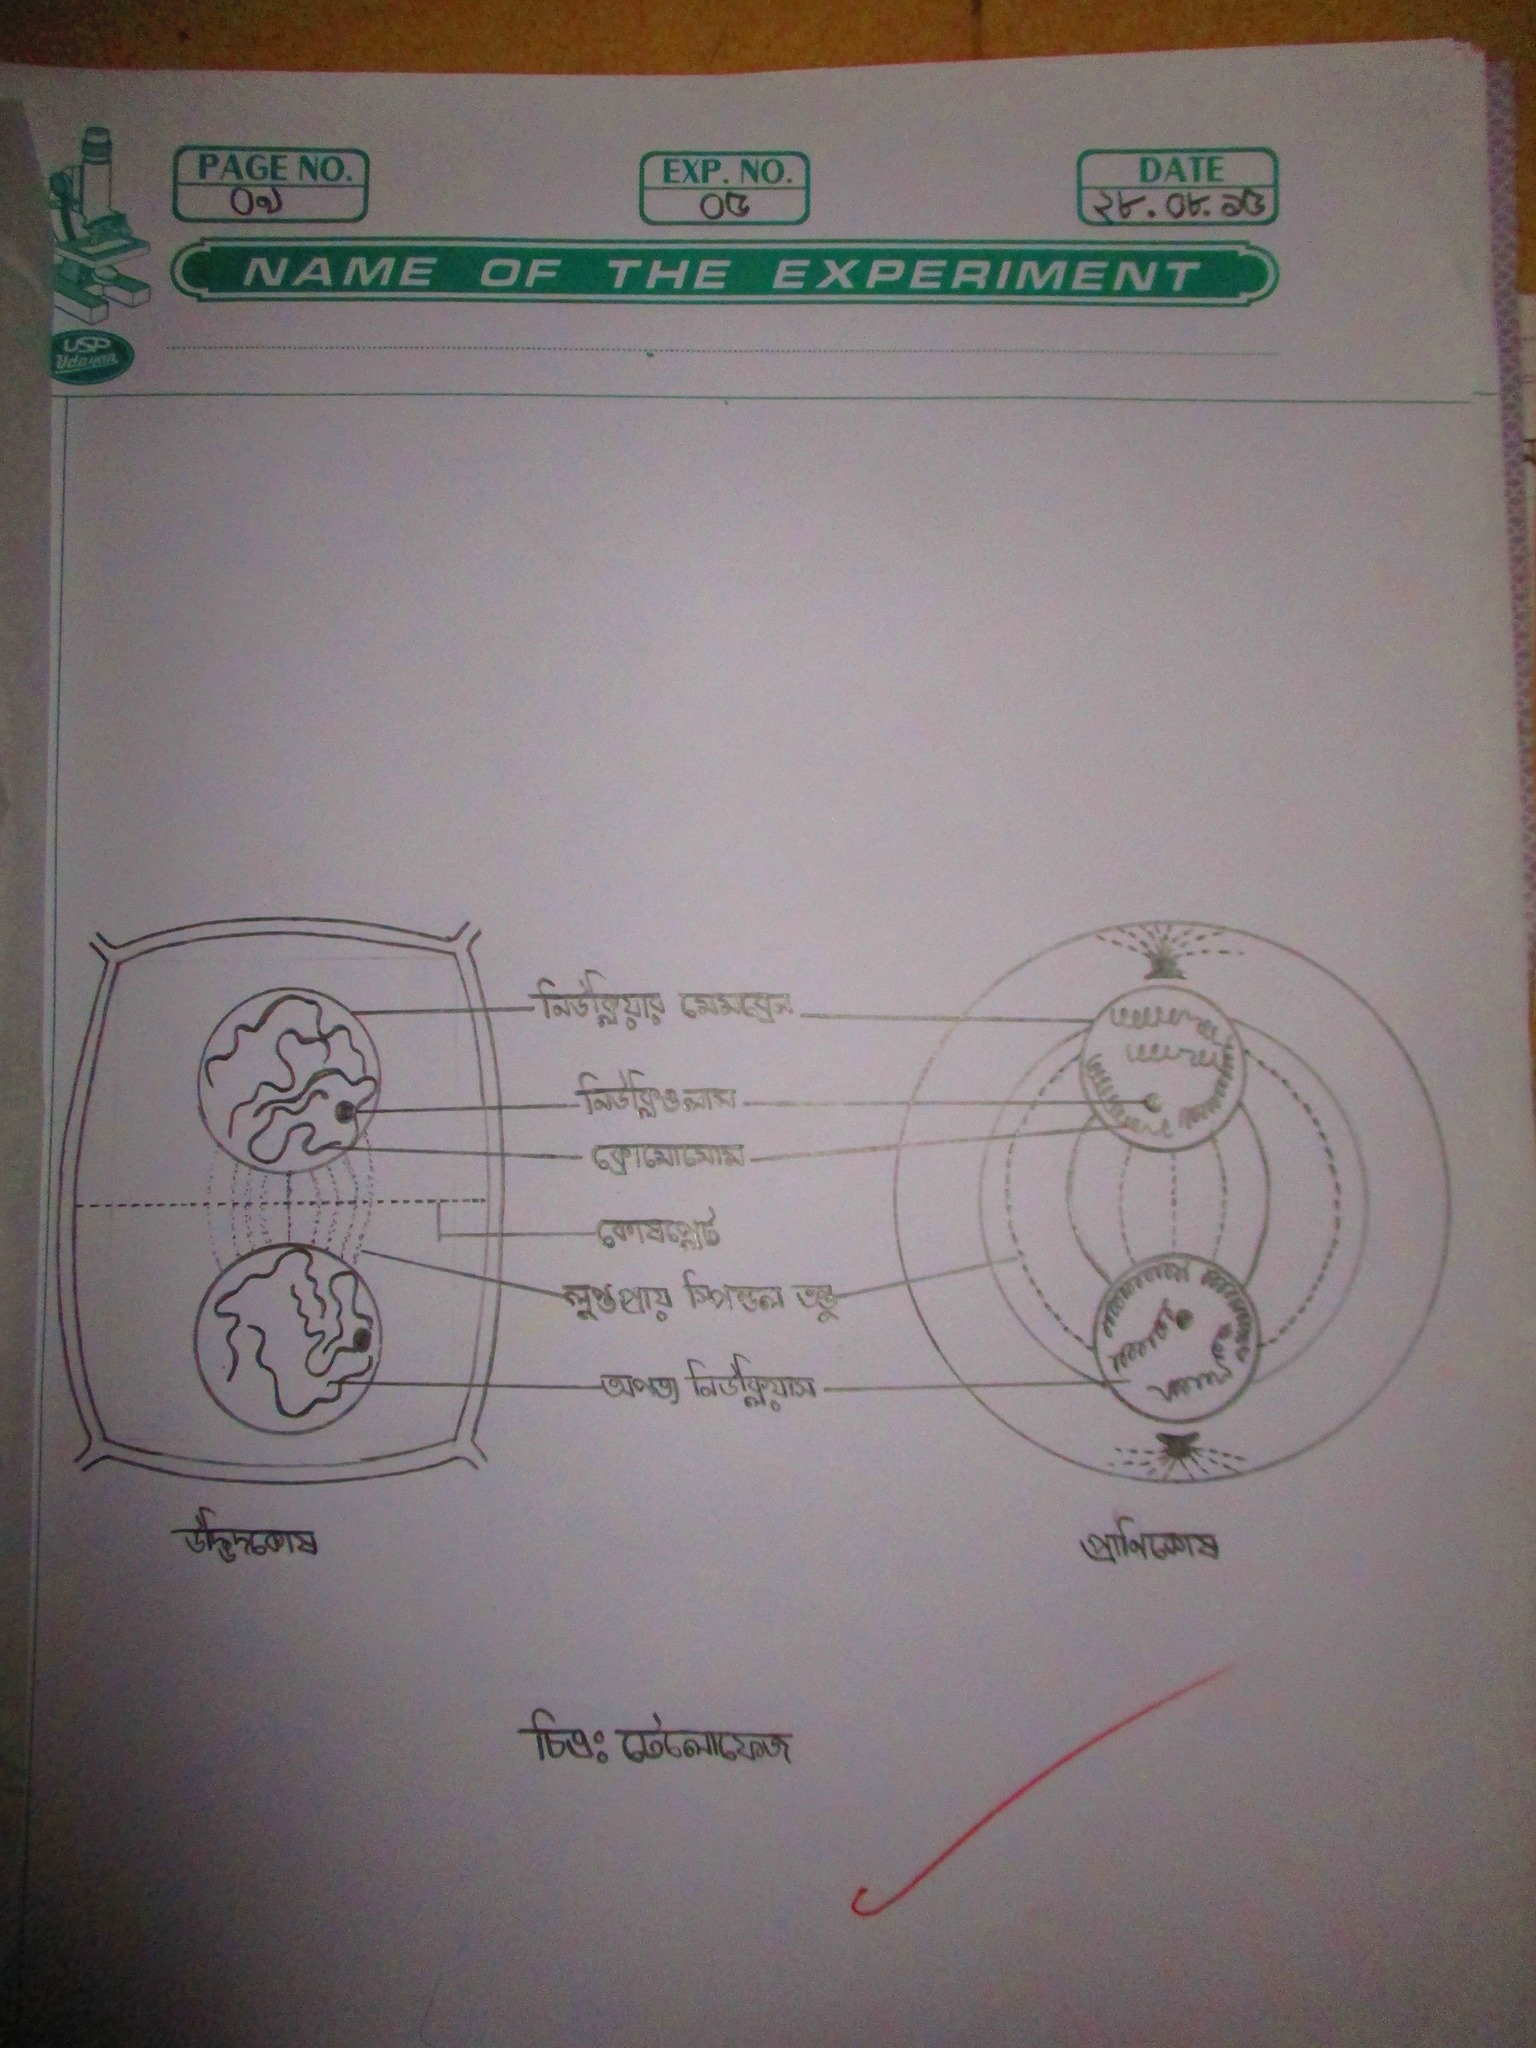 PAGE NO.
০৭
EXP. NO.
০৫
DATE
২৮.০৮.১৫
NAME OF THE EXPERIMENT
USP
Udayan
নিউক্লিয়ার মেমব্রেন
নিউক্লিওলাস
ক্রোমোসোম
কোষপ্লেট
লুপ্তপ্রায় স্পিন্ডল তন্তু
অপত্য নিউক্লিয়াস
উদ্ভিদকোষ
প্রাণিকোষ
চিত্রঃ টেলোফেজ